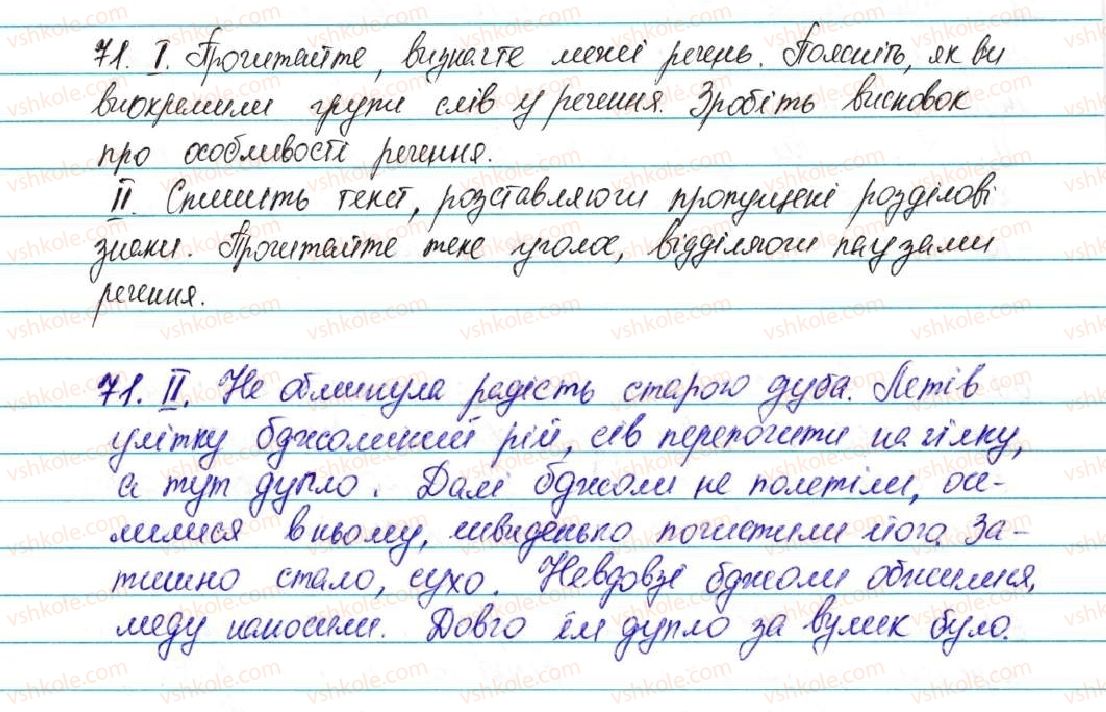 71. I. Прочитайте, визначте межі речень. Поясніть, як ви
виокремили групи слів у речення. Зробіть висновок
про особливості речення.
II. Спишіть текст, розставляючи пропущені розділові
знаки. Прочитайте текс уголос, відділяючи паузами
речення.
71. II. Не обминула радість старого дуба. Летів
улітку бджолиний рій, сів перепочити на гілку,
а тут дупло. Далі бджоли не полетіли, осе-
лилися в ньому, швиденько почистили його. За-
тишно стало, сухо. Невдовзі бджоли обжилися,
меду наносили. Довго їм дупло за вулик було.